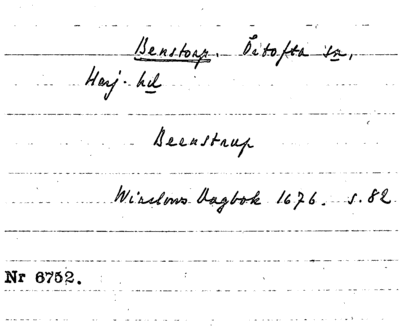 Benstorp. Örtofta sn,
Harj. hd
Beenstrup
Winslows Dagbok 1676. s. 82
Nr 6752.